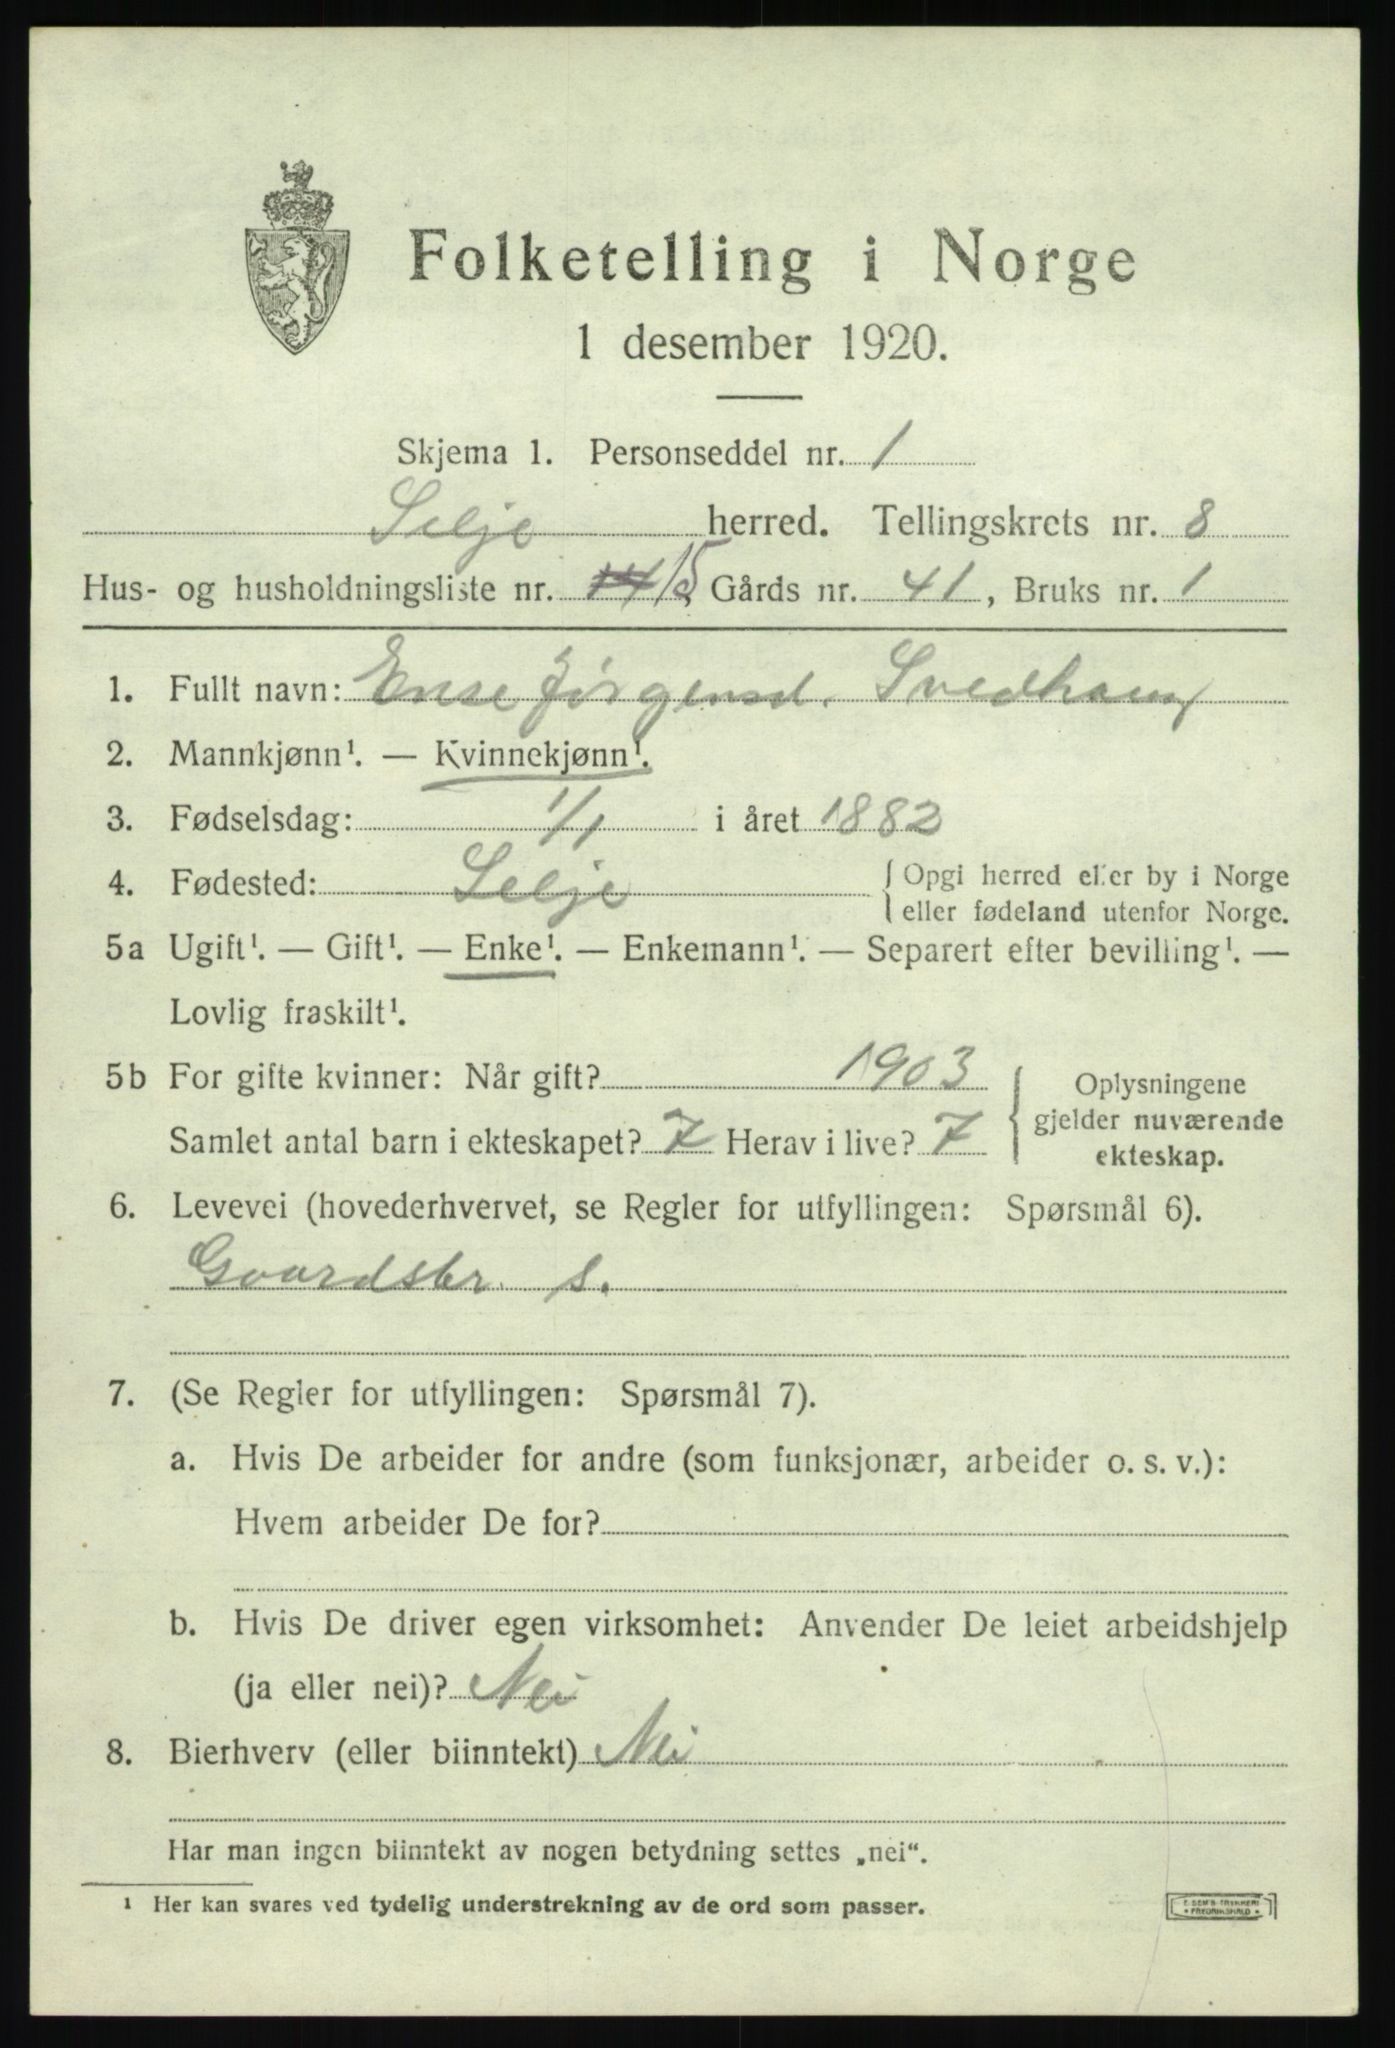 Folketelling i Norge
1 desember 1920.
Skjema 1. Personseddel nr. 1
Selje herred. Tellingskrets nr. 8
Hus- og husholdningsliste nr. 14 15, Gårds nr. 41, Bruks nr. 1
1. Fullt navn: Jørgensd.
2. Mannkjønn¹. — Kvinnekjønn¹.
3. Fødselsdag: 1/1 i året 1882
4. Fødested: Selje { Opgi herred eller by i Norge
eller fødeland utenfor Norge.
5a Ugift¹. — Gift¹. — Enke¹. — Enkemann¹. — Separert efter bevilling¹. —
Lovlig fraskilt¹.
5b For gifte kvinner: Når gift? 1903
Samlet antal barn i ekteskapet? 7 Herav i live? 7
{ Oplysningene
gjelder nuværende
ekteskap.
6. Levevei (hovederhvervet, se Regler for utfyllingen: Spørsmål 6).
Gaardsbr. s.
7. (Se Regler for utfyllingen: Spørsmål 7).
a. Hvis De arbeider for andre (som funksjonær, arbeider o. s. v.):
Hvem arbeider De for?
b. Hvis De driver egen virksomhet: Anvender De leiet arbeidshjelp
(ja eller nei)? Nei
8. Bierhverv (eller biinntekt) Nei
Har man ingen biinntekt av nogen betydning settes „nei“.
¹ Her kan svares ved tydelig understrekning av de ord som passer.
FREDRIKSHALD